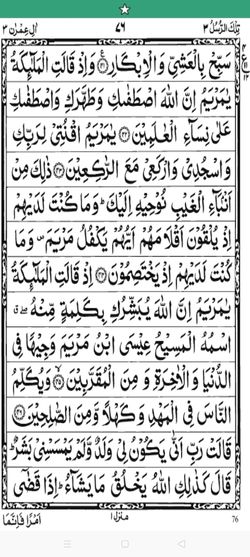 تِلْكَ الرُّسُلُ ٣ ٧٦ اٰلِ عِمْرٰن ٣
سَبِّحْ بِالْعَشِيِّ وَالْاِبْكَارِ ﴿٤١﴾ وَاِذْ قَالَتِ الْمَلٰٓئِكَةُ
يٰمَرْيَمُ اِنَّ اللّٰهَ اصْطَفٰىكِ وَطَهَّرَكِ وَاصْطَفٰىكِ
عَلٰى نِسَآءِ الْعٰلَمِيْنَ ﴿٤٢﴾ يٰمَرْيَمُ اقْنُتِيْ لِرَبِّكِ
وَاسْجُدِيْ وَارْكَعِيْ مَعَ الرّٰكِعِيْنَ ﴿٤٣﴾ ذٰلِكَ مِنْ
اَنْۢبَآءِ الْغَيْبِ نُوْحِيْهِ اِلَيْكَ ؕ وَمَا كُنْتَ لَدَيْهِمْ
اِذْ يُلْقُوْنَ اَقْلَامَهُمْ اَيُّهُمْ يَكْفُلُ مَرْيَمَ ۪ وَمَا
كُنْتَ لَدَيْهِمْ اِذْ يَخْتَصِمُوْنَ ﴿٤٤﴾ اِذْ قَالَتِ الْمَلٰٓئِكَةُ
يٰمَرْيَمُ اِنَّ اللّٰهَ يُبَشِّرُكِ بِكَلِمَةٍ مِّنْهُ ۖۗ
اسْمُهُ الْمَسِيْحُ عِيْسَى ابْنُ مَرْيَمَ وَجِيْهًا فِي
الدُّنْيَا وَالْاٰخِرَةِ وَ مِنَ الْمُقَرَّبِيْنَ ﴿٤٥﴾ وَيُكَلِّمُ
النَّاسَ فِي الْمَهْدِ وَكَهْلًا وَّ مِنَ الصّٰلِحِيْنَ ﴿٤٦﴾
قَالَتْ رَبِّ اَنّٰى يَكُوْنُ لِيْ وَلَدٌ وَّلَمْ يَمْسَسْنِيْ بَشَرٌ ؕ
قَالَ كَذٰلِكِ اللّٰهُ يَخْلُقُ مَا يَشَآءُ ؕ اِذَا قَضٰۤى
اَمْرًا فَاِنَّمَا منزل ١ 76